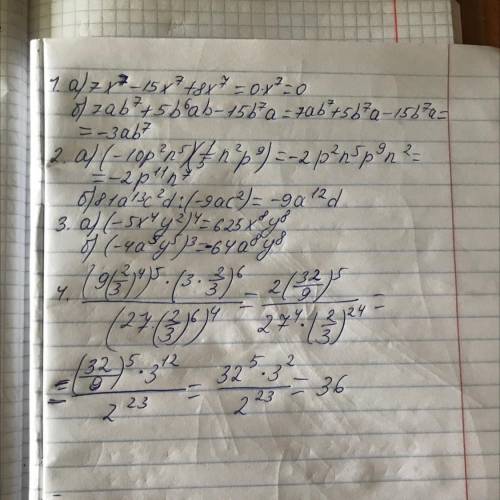 1. а) 7x⁷-15x⁷+8x⁷=0·x⁷=0
б) 7ab⁷+5b⁶ab-15b⁷a=7ab⁷+5b⁷a-15b⁷a=
=-3ab⁷
2. а) (-10p²n⁵)(1/5 n²p⁹)=-2p²n⁵p⁹n²=
=-2p¹¹n⁷
б) 81a¹³c²d:(-9ac²)=-9a¹²d
3. а) (-5x⁴y²)⁴=625x⁸y⁸
б) (-4a⁵y⁵)³=-64a⁸y⁸
4. (9(2/3)⁴)⁵·(3·2/3)⁶/(27·(2/3)⁶)⁴=2(32/9)⁵/27⁴·(2/3)²⁴=
=(32/9)⁵·3¹²/2²³=32⁵·3²/2²³=36